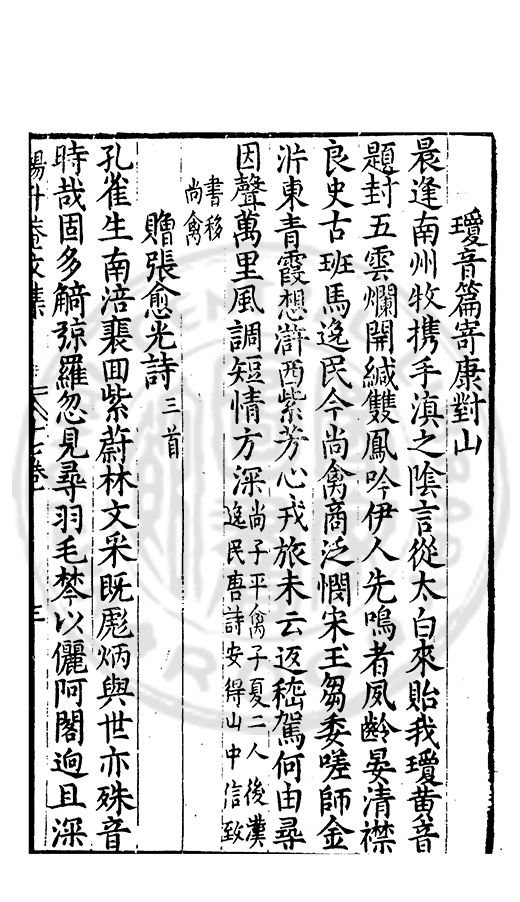 瓊音篇寄康對山
晨逢南州牧携手滇之陰言從太白來貽我瓊黄音
題封五雲爛開緘雙鳳吟伊人先鳴者夙齡晏清襟
良史古班馬逸民今尚禽商泛憫宋玉芻委嗟師金
泝東青霞想滸西紫芳心戎旅未云返嵇駕何由尋
因聲萬里風調短情方深尚子平禽子夏二人後漢
逸民唐詩安得山中信致
書移
尚禽
贈張愈光詩三首
孔雀生南涪裴回紫蔚林文采既彪炳與世亦殊音
時哉固多觭弶羅忽見尋羽毛棽以儷阿閣逈且深
楊升菴文集 卷 三